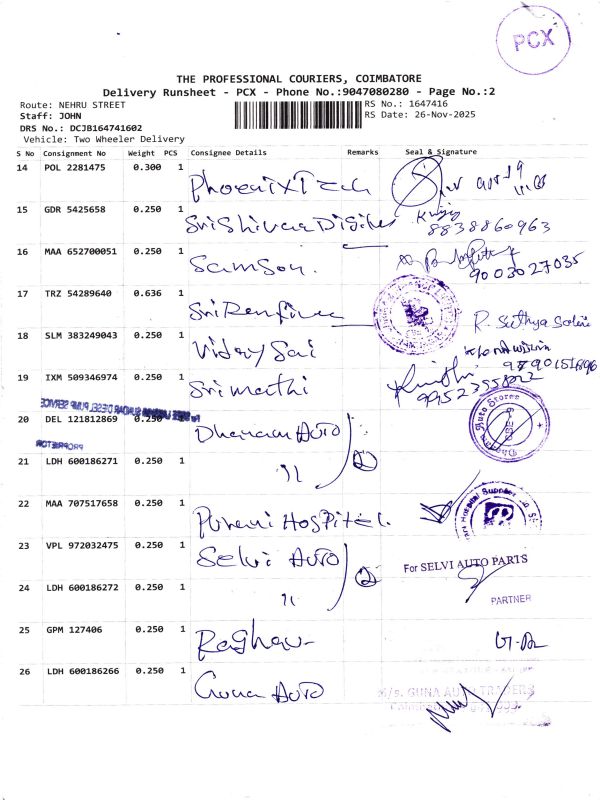 PCX
THE PROFESSIONAL COURIERS, COIMBATORE
Delivery Runsheet - PCX - Phone No.:9047080280 - Page No.:2
Route: NEHRU STREET
RS No.: 1647416
Staff: JOHN
RS Date: 26-Nov-2025
DRS No.: DCJB164741602
Vehicle: Two Wheeler Delivery
S No Consignment No Weight PCS Consignee Details Remarks Seal & Signature
14 POL 2281475 0.300 1 Phoenix Tech
15 GDR 5425658 0.250 1 Sri Shivaa Digital
8838860963
16 MAA 652700051 0.250 1 Samson.
9003027035
17 TRZ 54289640 0.636 1 Sri
R. Sathya
18 SLM 383249043 0.250 1 Viday Sai
9790151896
19 IXM 509346974 0.250 1 Srimathi
9952355822
SUNDAR DIESEL PUMP SERVICE
20 DEL 121812869 0.250 1 Dhanam Auto
Auto Stores
CBE-9
PROPRIETOR
21 LDH 600186271 0.250 1 11 2
22 MAA 707517658 0.250 1 Hospital.
Hospital Supplies
23 VPL 972032475 0.250 1 Selvi Auto
For SELVI AUTO PARTS
2
24 LDH 600186272 0.250 1 11
PARTNER
25 GPM 127406 0.250 1 Raghav
26 LDH 600186266 0.250 1 Guna Auto
M/s. GUNA AUTO TRADERS